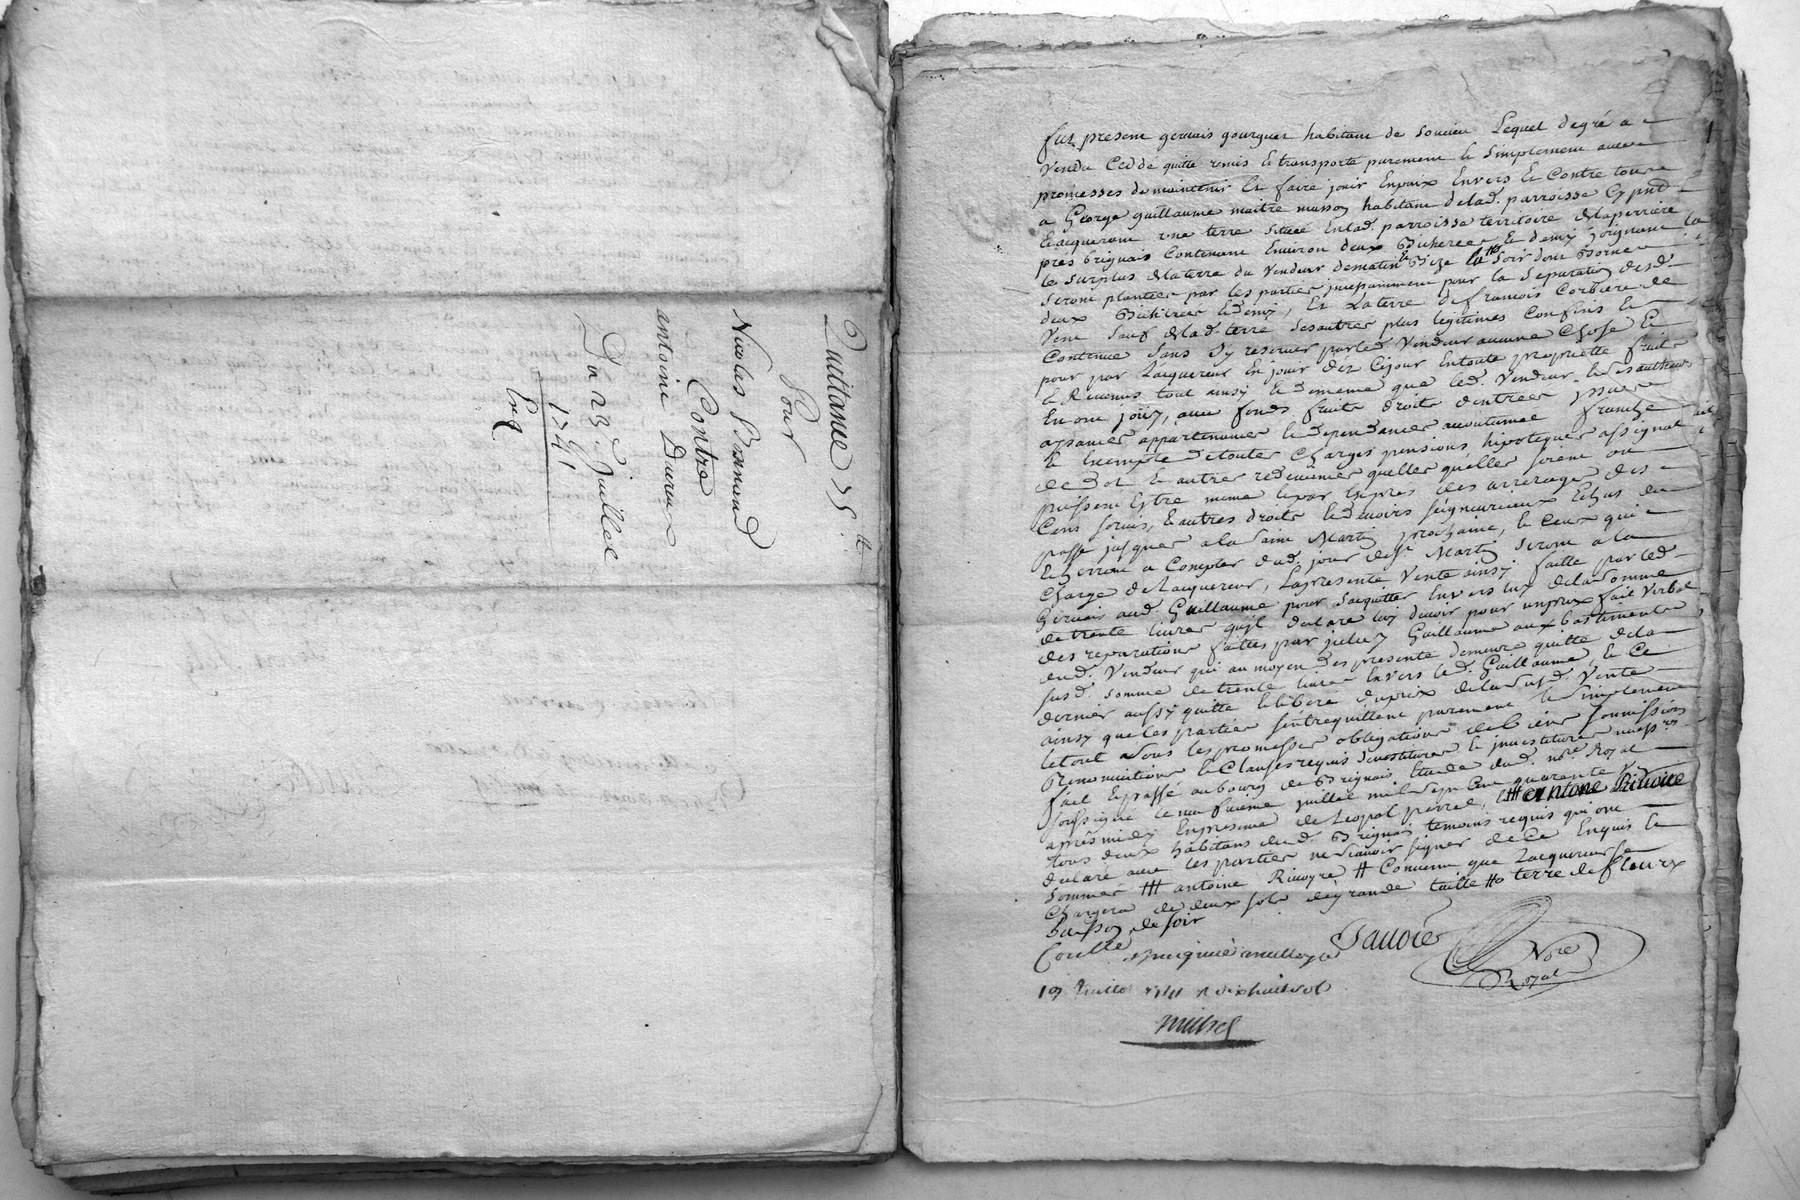 Quittance 75 lt
Pour
Nicolas
Contre
antoine
Du 23e Juillet
1741
Exp
fut present gervais gourguer habitant de Soucieu Lequel degré a
vendu Ceddé quitté remis & transporté purement & simplement avec
promesses de maintenir Et faire jouir Enpaix Envers Et Contre tous
a George guillaume maitre masson habitant delad. parroisse Cy pnt
& acquerant une terre située Enlad. parroisse territoire dela perriere
pres brignais Contenant Environ deux Bicherees & demy joignant la
le surplus dela terre du Vendeur dematin & Bize la soir dont Bornes
seront plantées par les parties pour la Separation desd.
deux Bicherees & demy, Et la terre de francois Corbiere de
Vent sauf delad. terre sesautres plus legitimes Confins Et
Contenue sans sy reserver parled. Vendeur aucune Chose Et
pour par Lacquereur En jouir dez Cejour Entoute proprieté fruits
& Revenus tout ainsy & dememe que led. Vendeur & ses autheurs
En ont jouy, avec fonds fruits droits dentrées yssues
appartenances & dependances accoutumée franche
& Exempte detoutes Charges pensions hipoteques assignat
de dot & autres redevances quelles quelles soient ou
puissent Estre meme des arrerages des
Cens servis, & autres droits & devoirs seigneuriaux Echus du
passé jusques a la saint Martin prochaine, & Ceux qui
Echerront a Compter dud. jour de st Martin seront a la
Charge de Lacquereur, Lapresente Vente ainsy faitte parled.
Gervais aud. Guillaume pour sacquitter Envers luy dela somme
de trente livres quil declare luy devoir pour unprix fait Verbal
des reparations faittes par julien Guillaume aux bastiments
dud. Vendeur qui au moyen des presente demeure quitte dela
susd. somme de trente livres Envers led. Guillaume, & Ce
dernier aussy quitte & libere duprix dela susd. Vente
ainsy queles parties sentrequittent purement & simplement
letout sous les promesses obligations debiens soumissions
Renonciations & Clauses requis
fait & passé aubourg de Brignais Etude dud. nore Royal
soussigné le neufvieme juillet mil sept Cent quarante un
apresmidy Enpresence de Leopol perret, & ### antoine Rivoire
tous deux habitans dud. Brignais temoins requis qui ont
declaré avec les parties ne scavoir signer dece Enquis &
sommés ### antoine Rivoyre # Convenu que Lacquereur se
Chargera de deux sols de grande taille #o terre de fleurx
de soir
Saudié
Nore
Royal
19 Juillet 1741 R dixhuit sols
michel